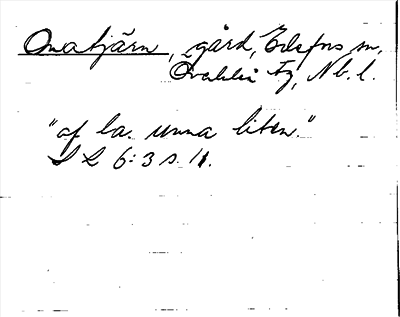 Onatjärn, gård, Edefors sn,
Överluleå tg, Nb. l.
"af la. unna liten."
S L 6:3 s. 11.